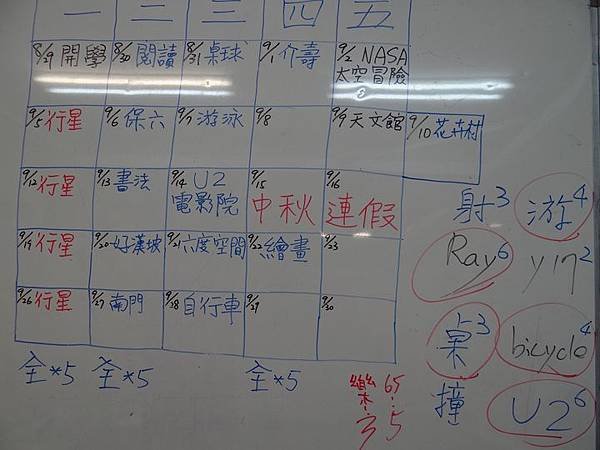 一 二 三 四 五
8/29 開學 8/30 閱讀 8/31 桌球 9/1 介壽 9/2 NASA
太空冒險
9/5 行星 9/6 保六 9/7 游泳 9/8 9/9 天文館 9/10 花卉村
9/12 行星 9/13 書法 9/14 U2 9/15 9/16
電影院 中秋 連假
9/19 行星 9/20 好漢坡 9/21 六度空間 9/22 繪畫 9/23
9/26 行星 9/27 南門 9/28 自行車 9/29 9/30
全*5 全*5 全*5
射3 游4
Ray6 yin2
桌3 bicycle4
撞 U26
樂 65
5